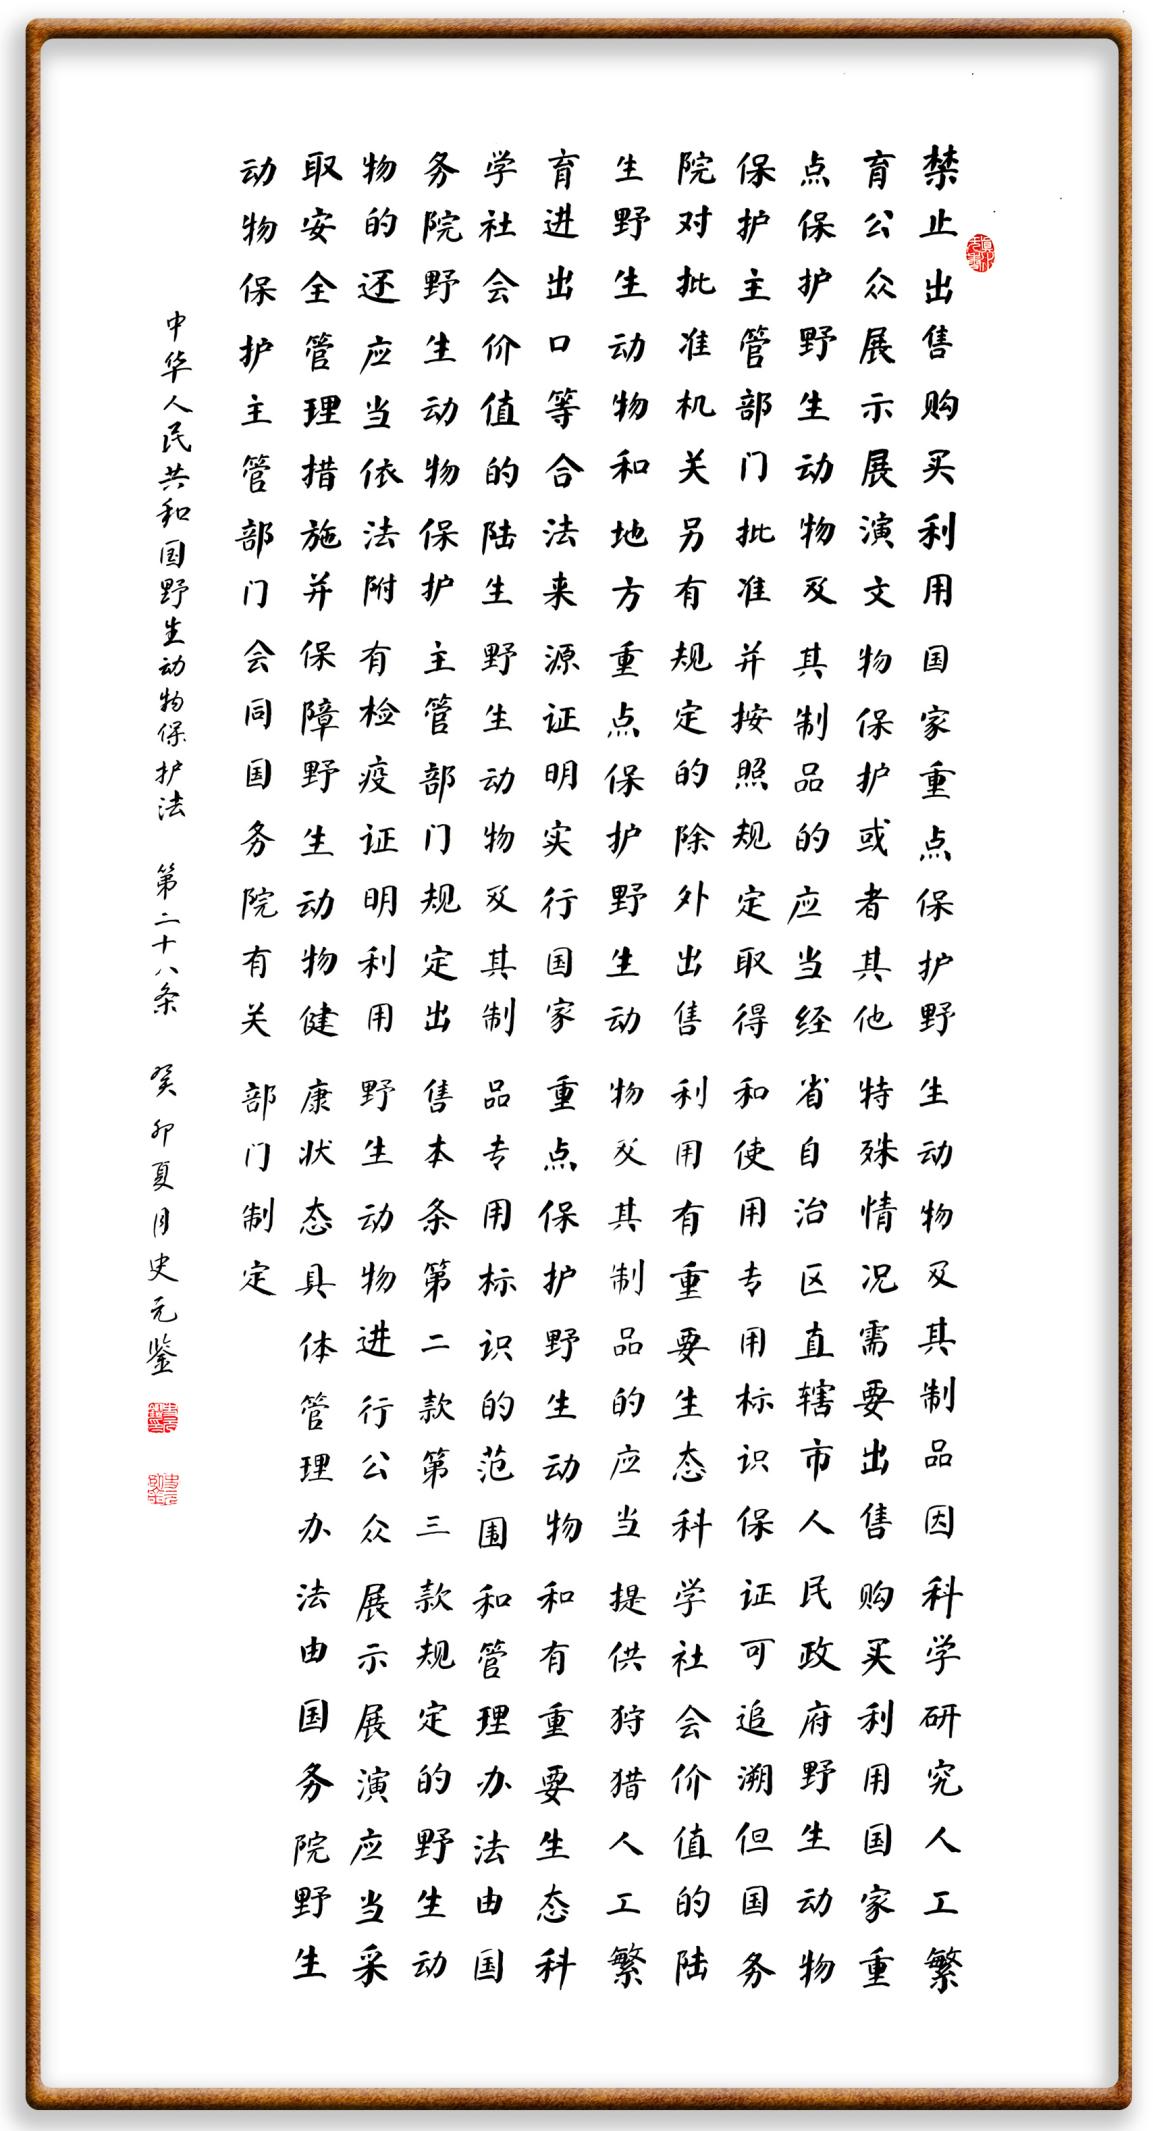 禁止出售购买利用国家重点保护野生动物及其制品因科学研究人工繁
育公众展示展演文物保护或者其他特殊情况需要出售购买利用国家重
点保护野生动物及其制品的应当经省自治区直辖市人民政府野生动物
保护主管部门批准并按照规定取得和使用专用标识保证可追溯但国务
院对批准机关另有规定的除外出售利用有重要生态科学社会价值的陆
生野生动物和地方重点保护野生动物及其制品的应当提供狩猎人工繁
育进出口等合法来源证明实行国家重点保护野生动物和有重要生态科
学社会价值的陆生野生动物及其制品专用标识的范围和管理办法由国
务院野生动物保护主管部门规定出售本条第二款第三款规定的野生动
物的还应当依法附有检疫证明利用野生动物进行公众展示展演应当采
取安全管理措施并保障野生动物健康状态具体管理办法由国务院野生
动物保护主管部门会同国务院有关部门制定
中华人民共和国野生动物保护法 第二十八条 癸卯夏月史元鉴